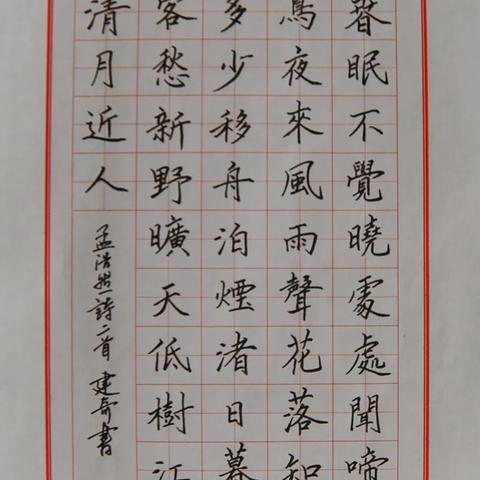 春眠不覺曉處處聞啼
鳥夜來風雨聲花落知
多少移舟泊煙渚日暮
客愁新野曠天低樹江
清月近人
孟浩然詩二首 建書